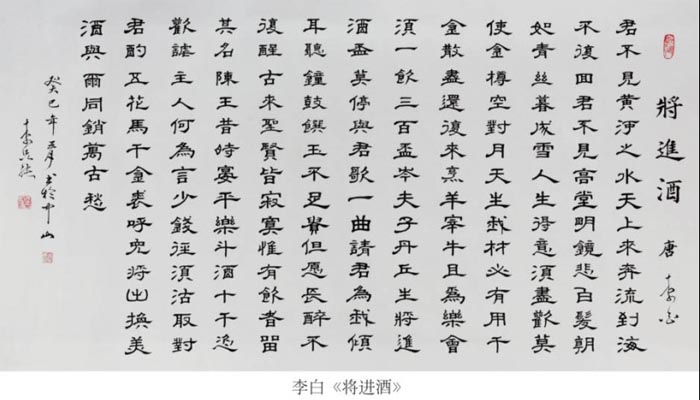 將進酒 唐 李白
君不見黃河之水天上來奔流到海
不復回君不見高堂明鏡悲白髮朝
如青絲暮成雪人生得意須盡歡莫
使金樽空對月天生我材必有用千
金散盡還復來烹羊宰牛且爲樂會
須一飲三百盃岑夫子丹丘生將進
酒盃莫停與君歌一曲請君為我傾
耳聽鐘鼓饌玉不足貴但愿長醉不
復醒古來聖賢皆寂寞惟有飲者留
其名陳王昔時宴平樂斗酒十千恣
歡謔主人何為言少錢徑須沽取對
君酌五花馬千金裘呼兒將出換美
酒與爾同銷萬古愁
癸巳年五月書於中山
李
李白《将进酒》